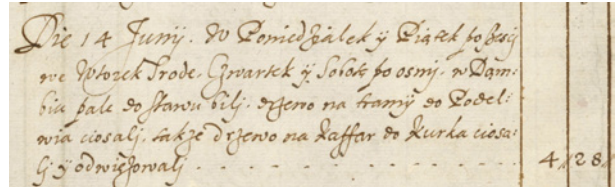 Die 14 Junij. W Poniedzialek y Piątek po szesci
we Wtorek Srode. Czwartek y Sobotę po osmij. w Dąm:
biu pale do stawu bili. drzewo na tramy do Podel:
wia ciosali. także drzewo na Kaffar do Kurka ciosa:
lj y odwięzowali . . . . . . . . . . 4 // 28 //